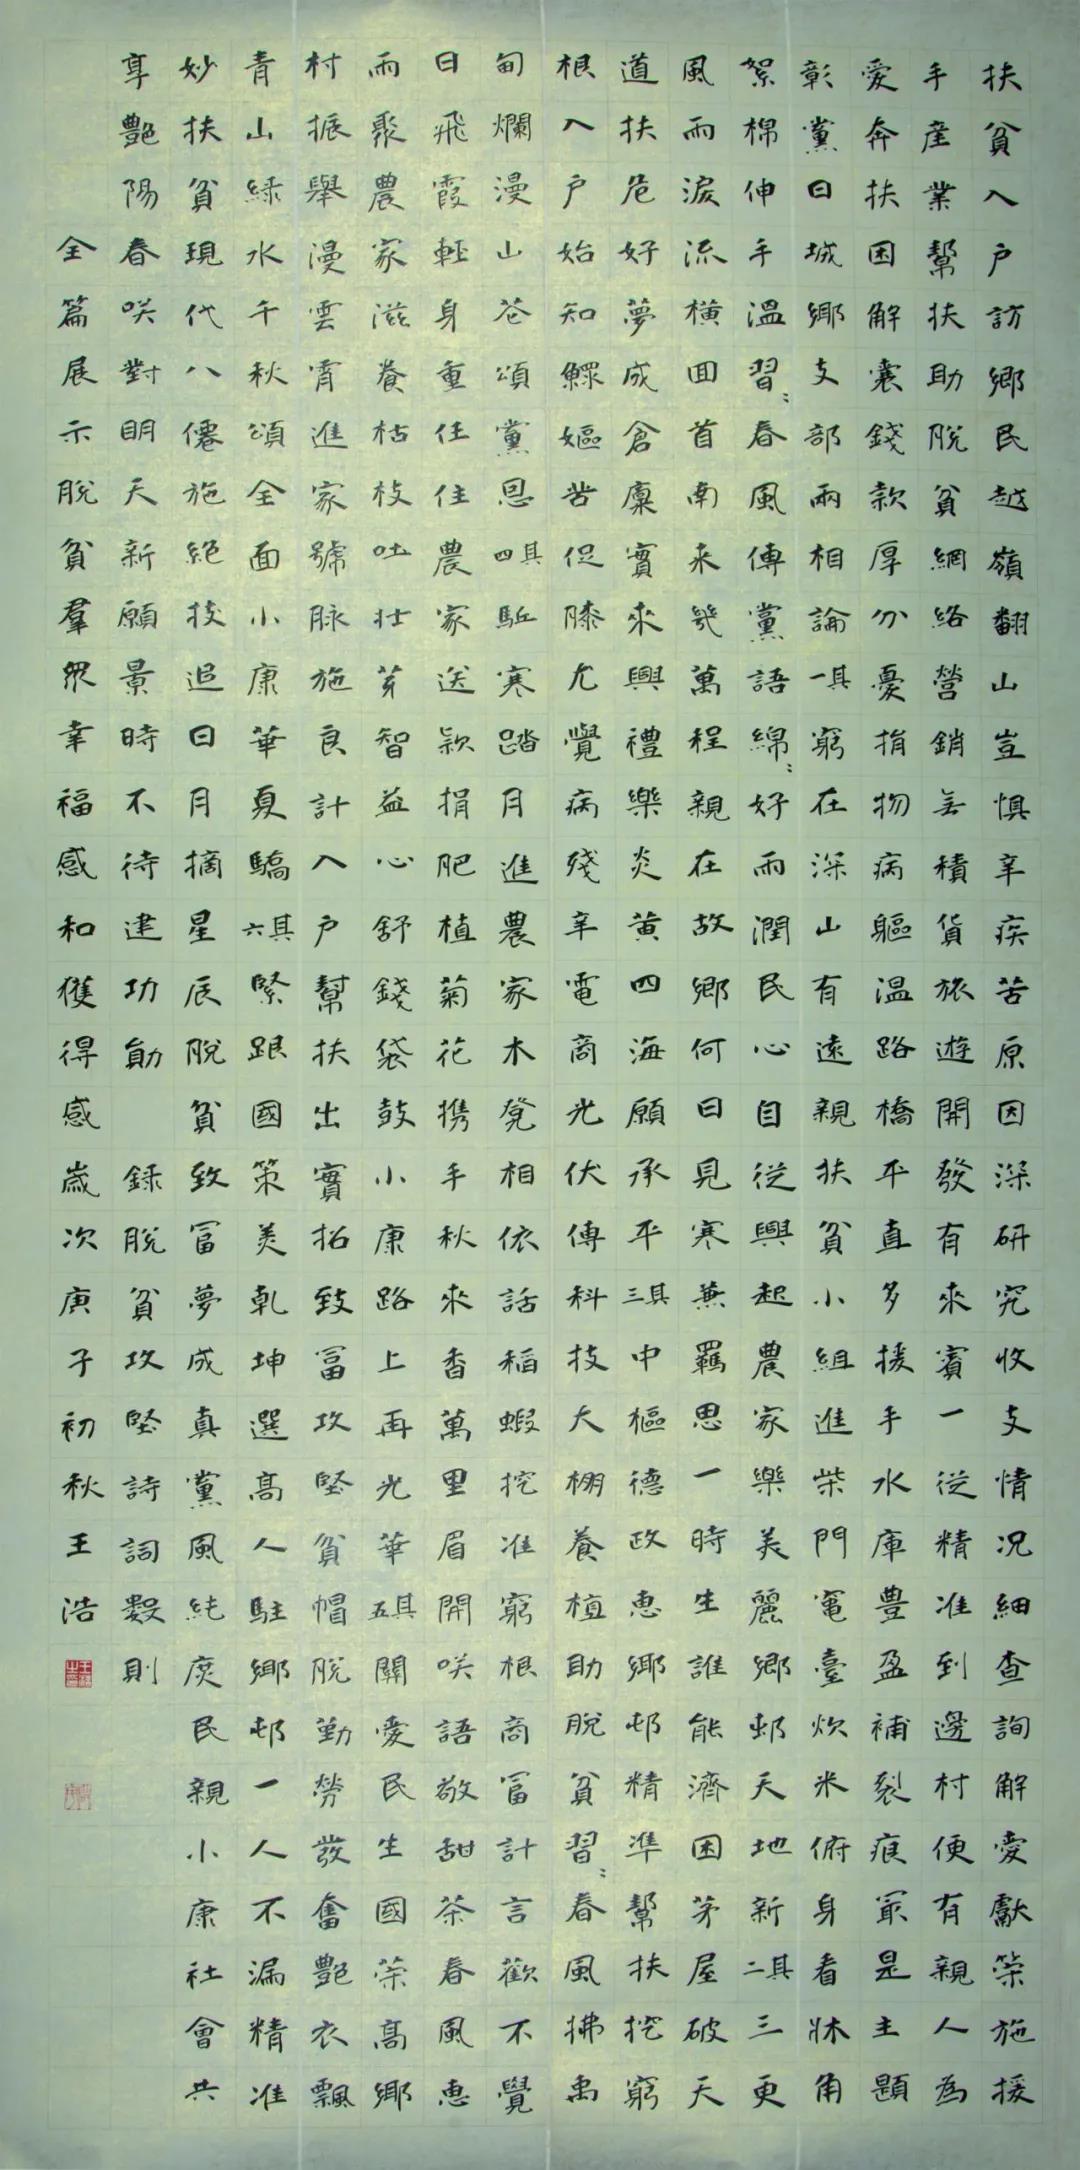 扶貧入戶訪鄉民越嶺翻山豈懼辛疾苦原因深研究收支情況細查詢解愛獻策施援
手產業幫扶助脫貧網絡營銷無積貨旅遊開發有來賓一從精准到邊村便有親人為
愛奔扶困解囊錢款厚分憂捐物病軀溫路橋平直多援手水庫豐盈補裂痕最是主題
彰黨日城鄉支部兩相論其一窮在深山有遠親扶貧小組進柴門竈臺炊米俯身看牀角
絮棉伸手溫習々春風傳黨語綿々好雨潤民心自從興起農家樂美麗鄉邨天地新其二三更
風雨淚流橫回首南来幾萬程親在故鄉何日見寒蕪羈思一時生誰能濟困茅屋破天
道扶危好夢成倉廩實來興禮樂炎黃四海願承平其三中樞德政惠鄉邨精準幫扶挖窮
根入戶始知鰥嫗苦促膝尤覺病殘辛電商光伏傳科技大棚養植助脫貧習々春風拂禹
甸爛漫山花頌黨恩其四駈寒踏月進農家木凳相依話稻蝦挖准窮根商富計言歡不覺
日飛霞輕身重任住農家送款捐肥植菊花携手秋來香萬里眉開咲語敬甜茶春風惠
雨聚農家滋養枯枝吐壯芽智益心舒錢袋鼓小康路上再光華其五關愛民生國榮高鄉
村振舉漫雲霄進家號脉施良計入戶幫扶出實拓致富攻堅貧帽脫勤勞發奮艷衣飄
青山綠水千秋頌全面小康華夏驕其六緊跟國策美乾坤選高人駐鄉邨一人不漏精准
妙扶貧現代八僊施絕技追日月摘星辰脫貧致富夢成真黨風純庶民親小康社會共
享艷陽春咲對明天新願景時不待建功勛 録脫貧攻堅詩詞數則
全篇展示脫貧羣眾幸福感和獲得感歲次庚子初秋王浩